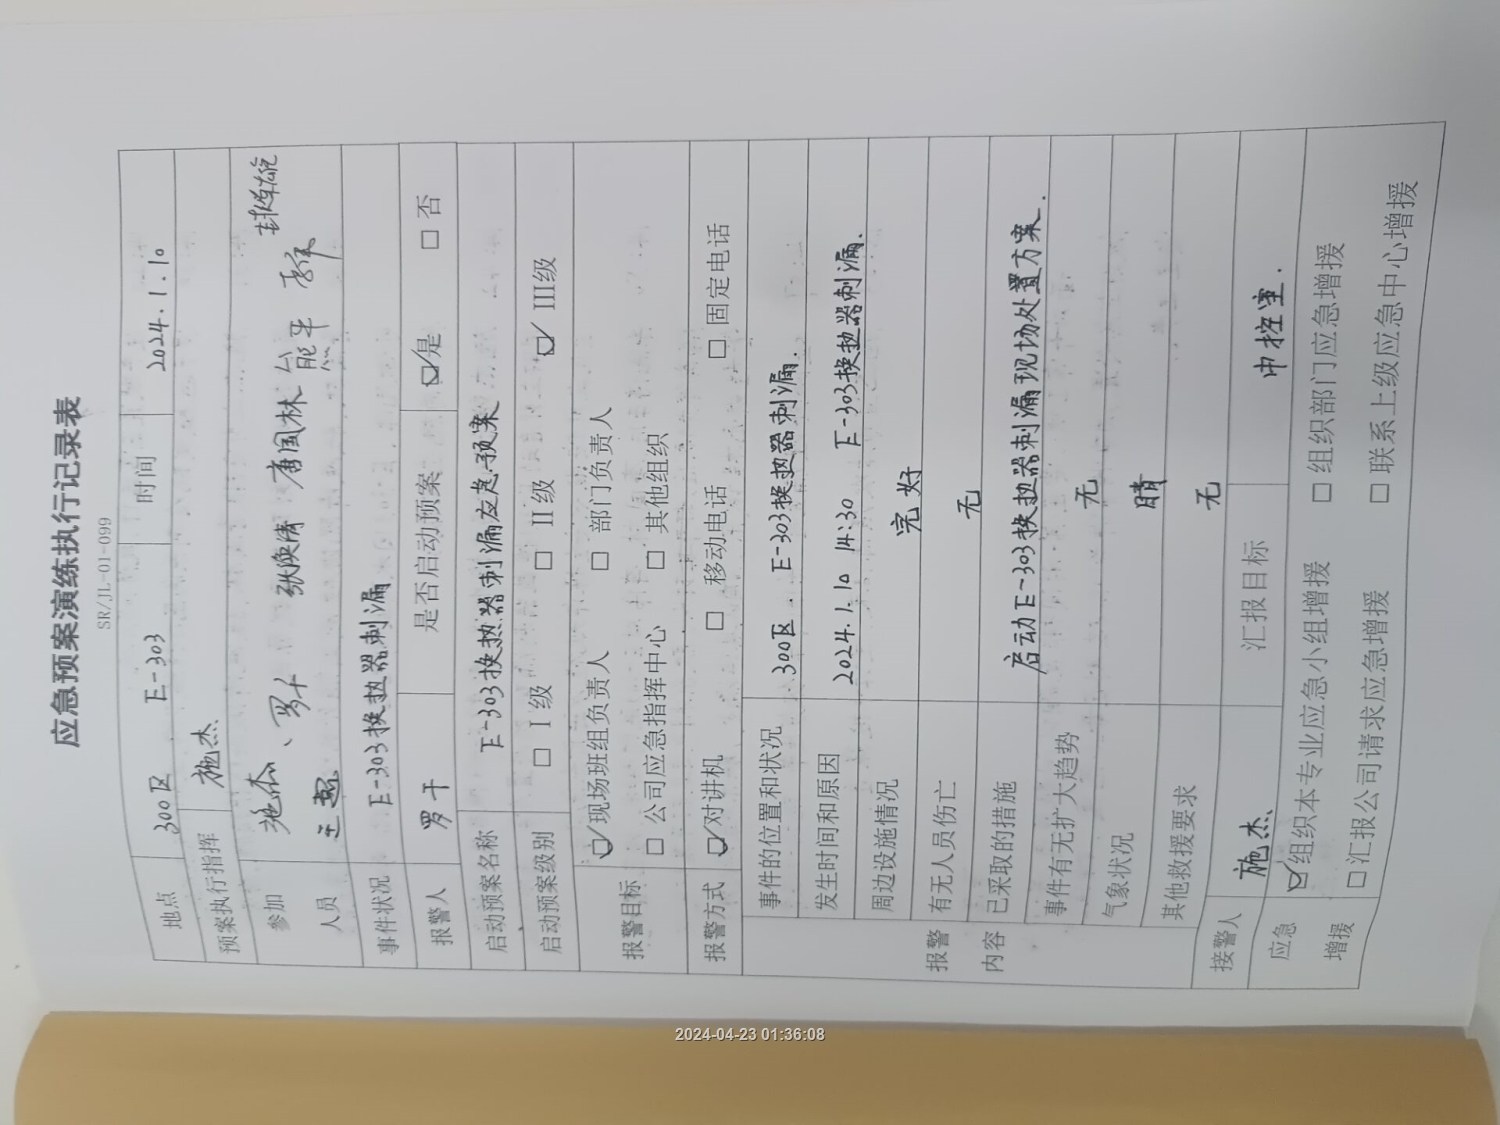 应急预案演练执行记录表
SR/JL-01-099
地点 300区 E-303 时间 2024.1.10
预案执行指挥 施杰
参加 施杰、罗干 张焕清 唐国林 熊平
人员
事件状况 E-303换热器刺漏
报警人 罗干 是否启动预案 ☑是 □否
启动预案名称 E-303换热器刺漏应急预案
启动预案级别 □ I级 □ II级 ☑ III级
报警目标 ☑现场班组负责人 □ 部门负责人
□ 公司应急指挥中心 □ 其他组织
报警方式 ☑对讲机 □ 移动电话 □ 固定电话
报警
内容
事件的位置和状况 300区. E-303换热器刺漏.
发生时间和原因 2024.1.10 14:30 E-303换热器刺漏.
周边设施情况 完好
有无人员伤亡 无
已采取的措施 启动E-303换热器刺漏现场处置方案.
事件有无扩大趋势 无
气象状况 晴
其他救援要求 无
接警人 施杰 汇报目标 中控室.
应急 ☑组织本专业应急小组增援 □ 组织部门应急增援
增援 □汇报公司请求应急增援 □ 联系上级应急中心增援
2024-04-23 01:36:08